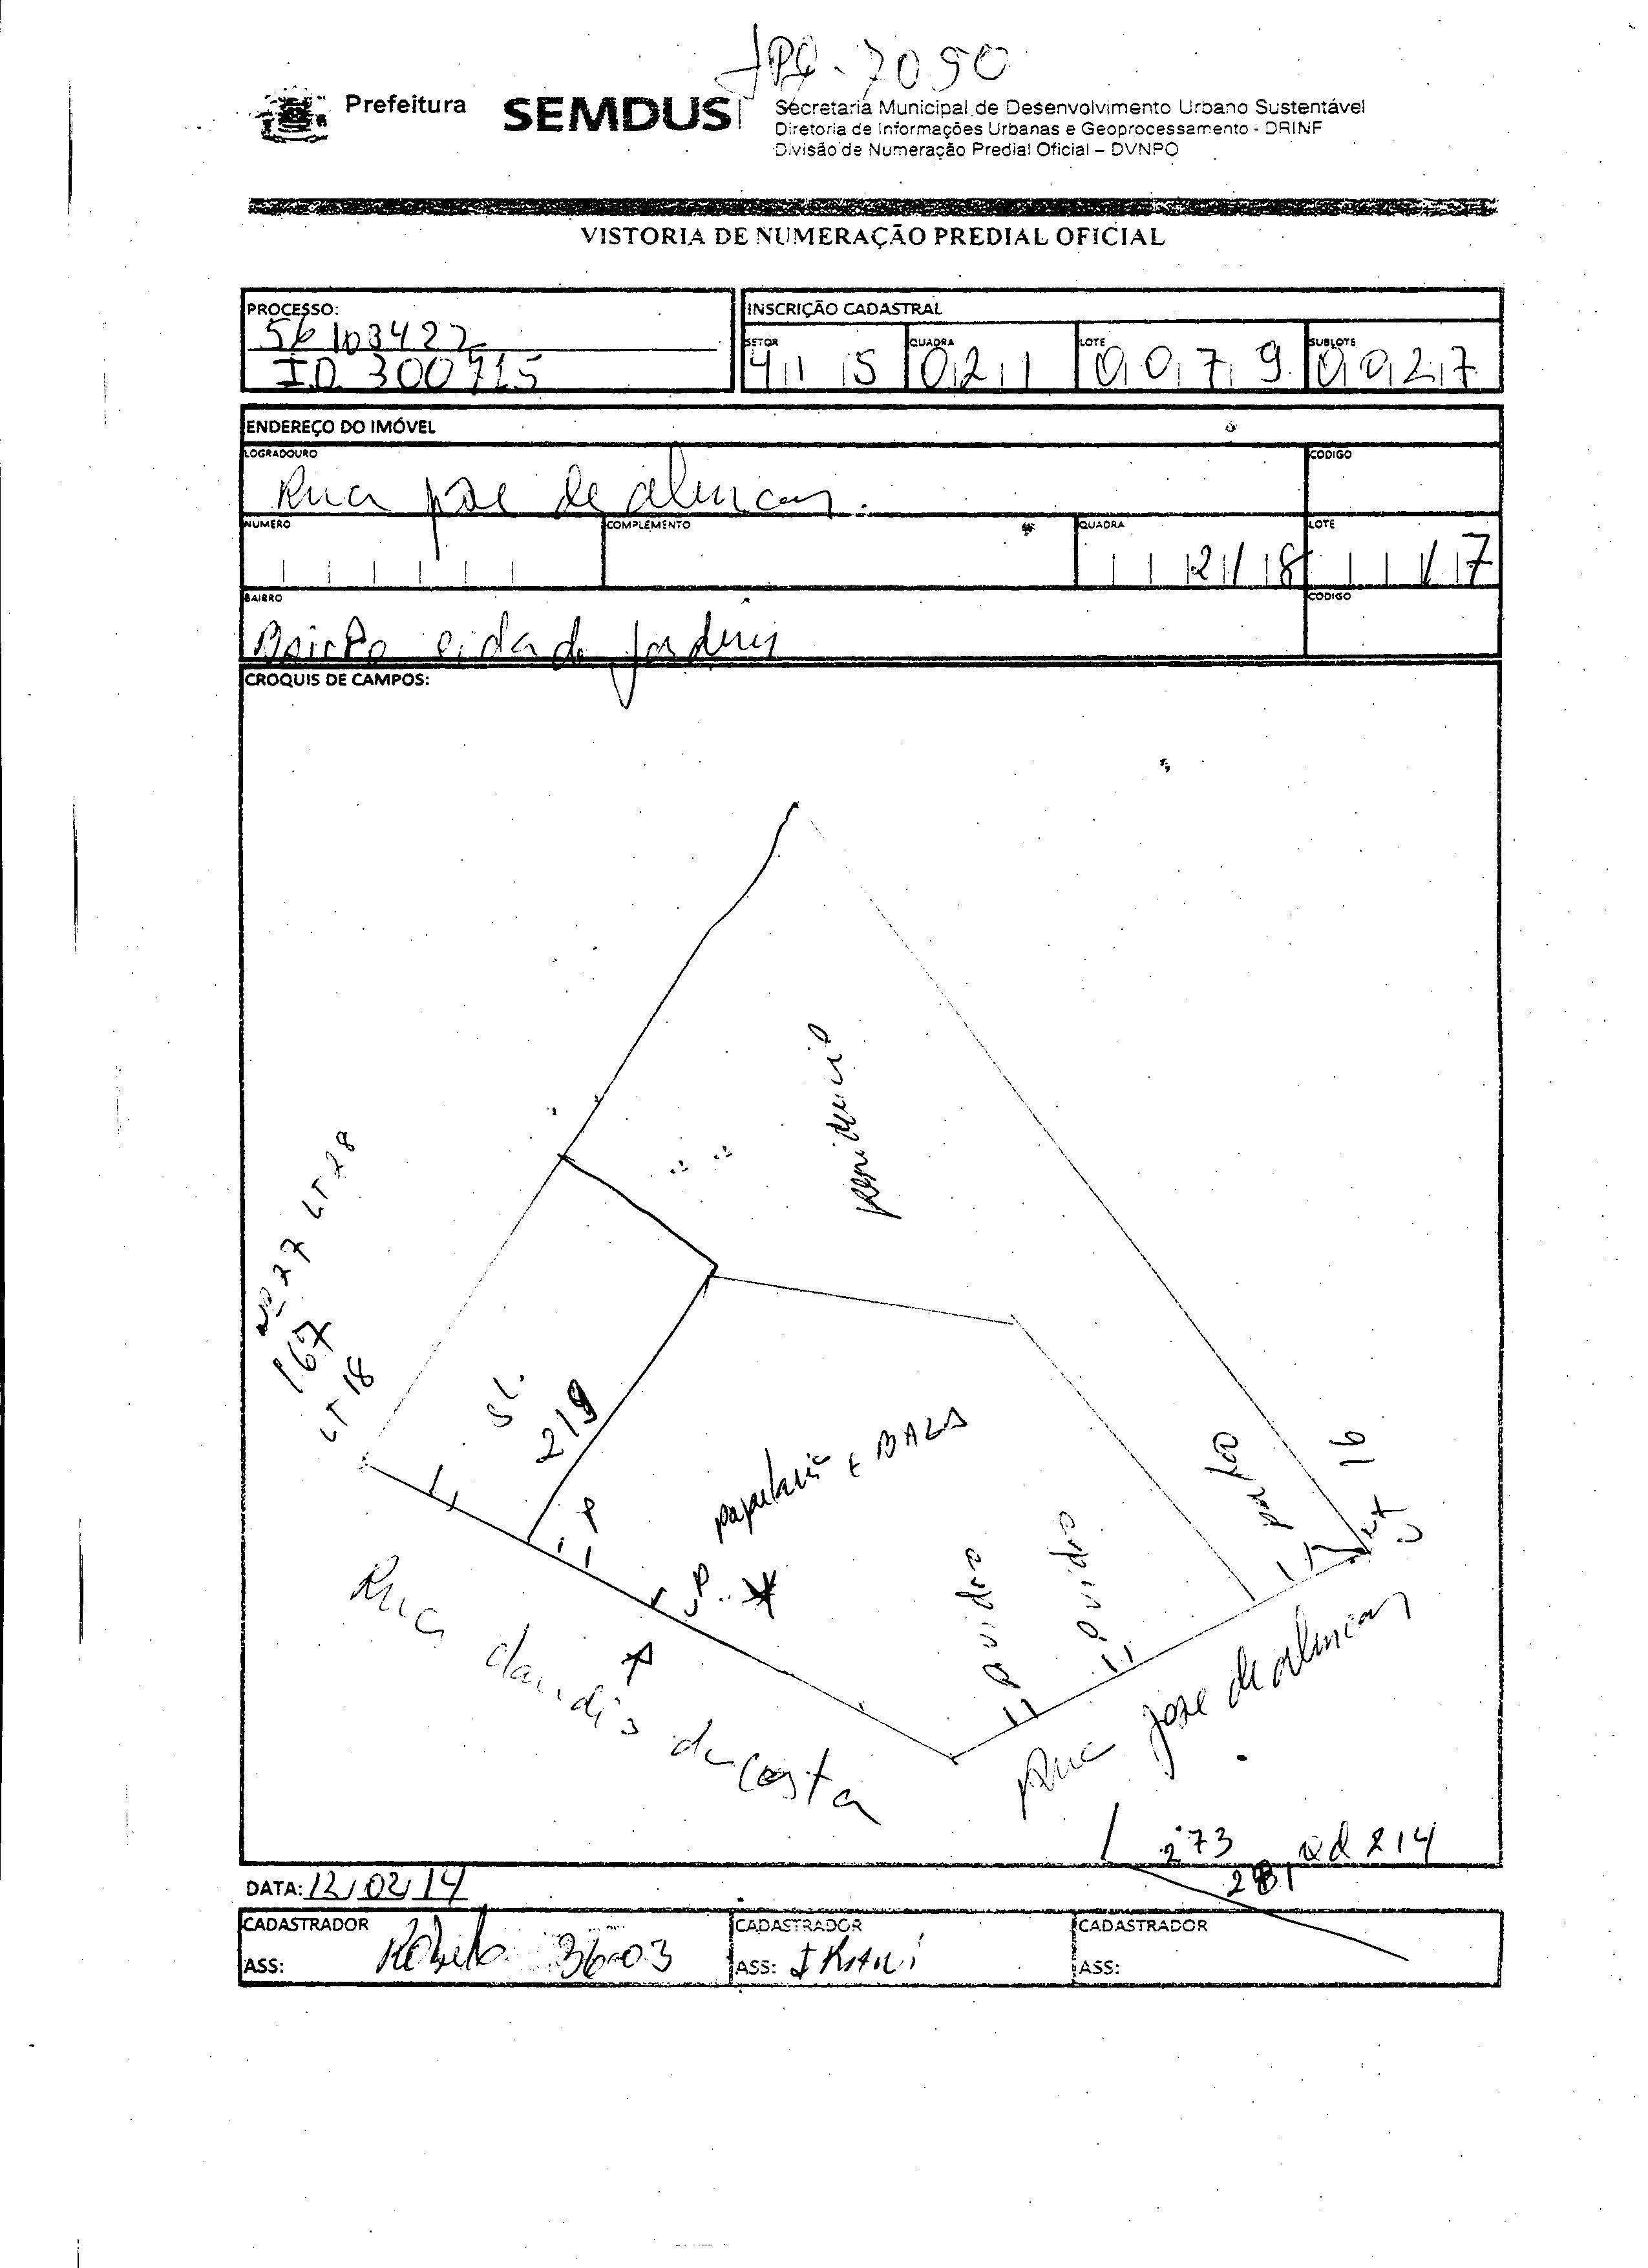 JPG-7090
Prefeitura SEMDUS
Secretaria Municipal de Desenvolvimento Urbano Sustentável
Diretoria de Informações Urbanas e Geoprocessamento - DRINF
Divisão de Numeração Predial Oficial – DVNPO
VISTORIA DE NUMERAÇÃO PREDIAL OFICIAL
PROCESSO:
56103422
ID 300715
INSCRIÇÃO CADASTRAL
SETOR 415 QUADRA 021 LOTE 0079 SUBLOTE 0027
ENDEREÇO DO IMÓVEL
LOGRADOURO
Rua jose de alencar
CODIGO
NUMERO
COMPLEMENTO
QUADRA 218
LOTE 17
BAIRRO
Bairro cidade jardim
CODIGO
CROQUIS DE CAMPOS:
residencia
Nº 27 LT 28
167
LT 18
SL.
219
papelaria E BALA
P
P.
P vidro
P vidro
portão
LT 16
Rua claudio da costa
Rua jose de alencar
273 Qd 214
281
DATA: 12/02/14
CADASTRADOR
ASS: Roberto 3603
CADASTRADOR
ASS: IRANI
CADASTRADOR
ASS: